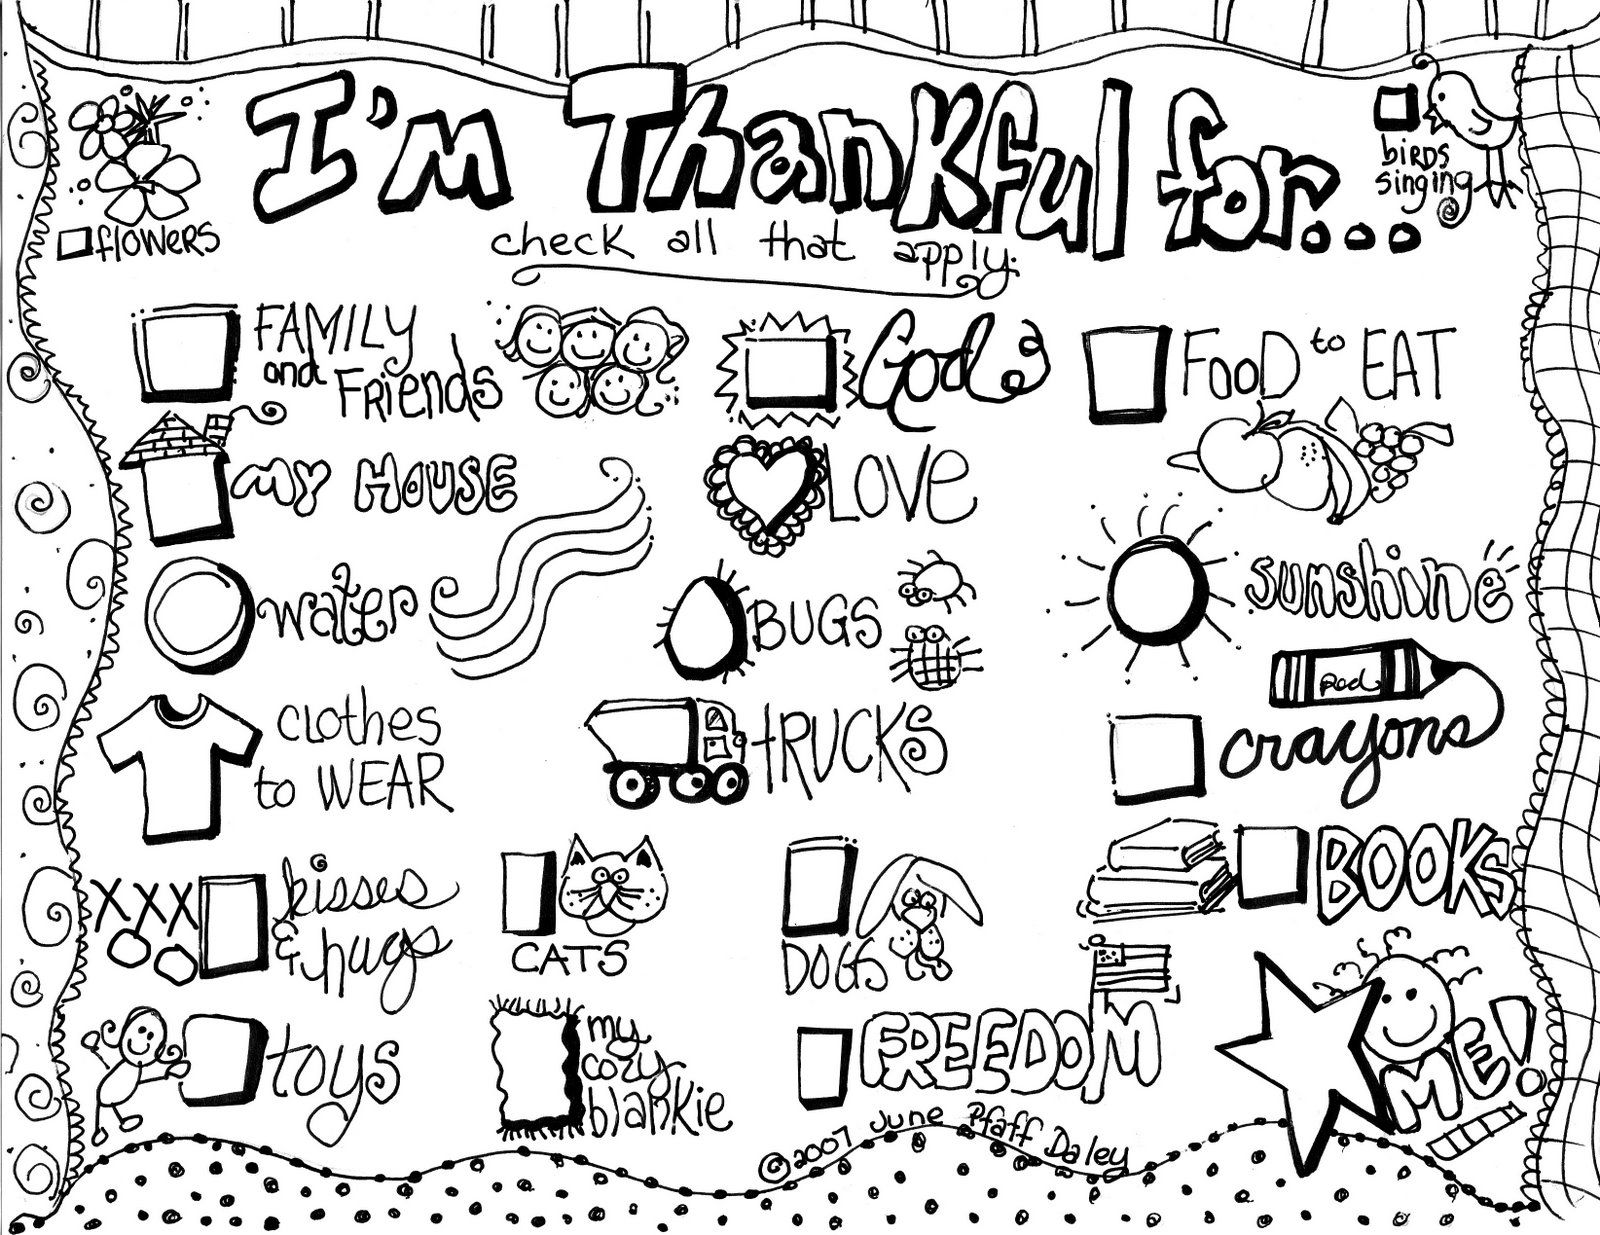 I'm Thankful for...
birds
singing
flowers
check all that apply.
FAMILY
and Friends
God
FOOD to EAT
MY HOUSE
LOVE
water
BUGS
sunshine
Red
clothes
to WEAR
tRUCKS
crayons
BOOKS
kisses
& hugs
CATS
DOGS
toys
my
cozy
blankie
FREEDOM
ME!
©2007 June Pfaff Daley